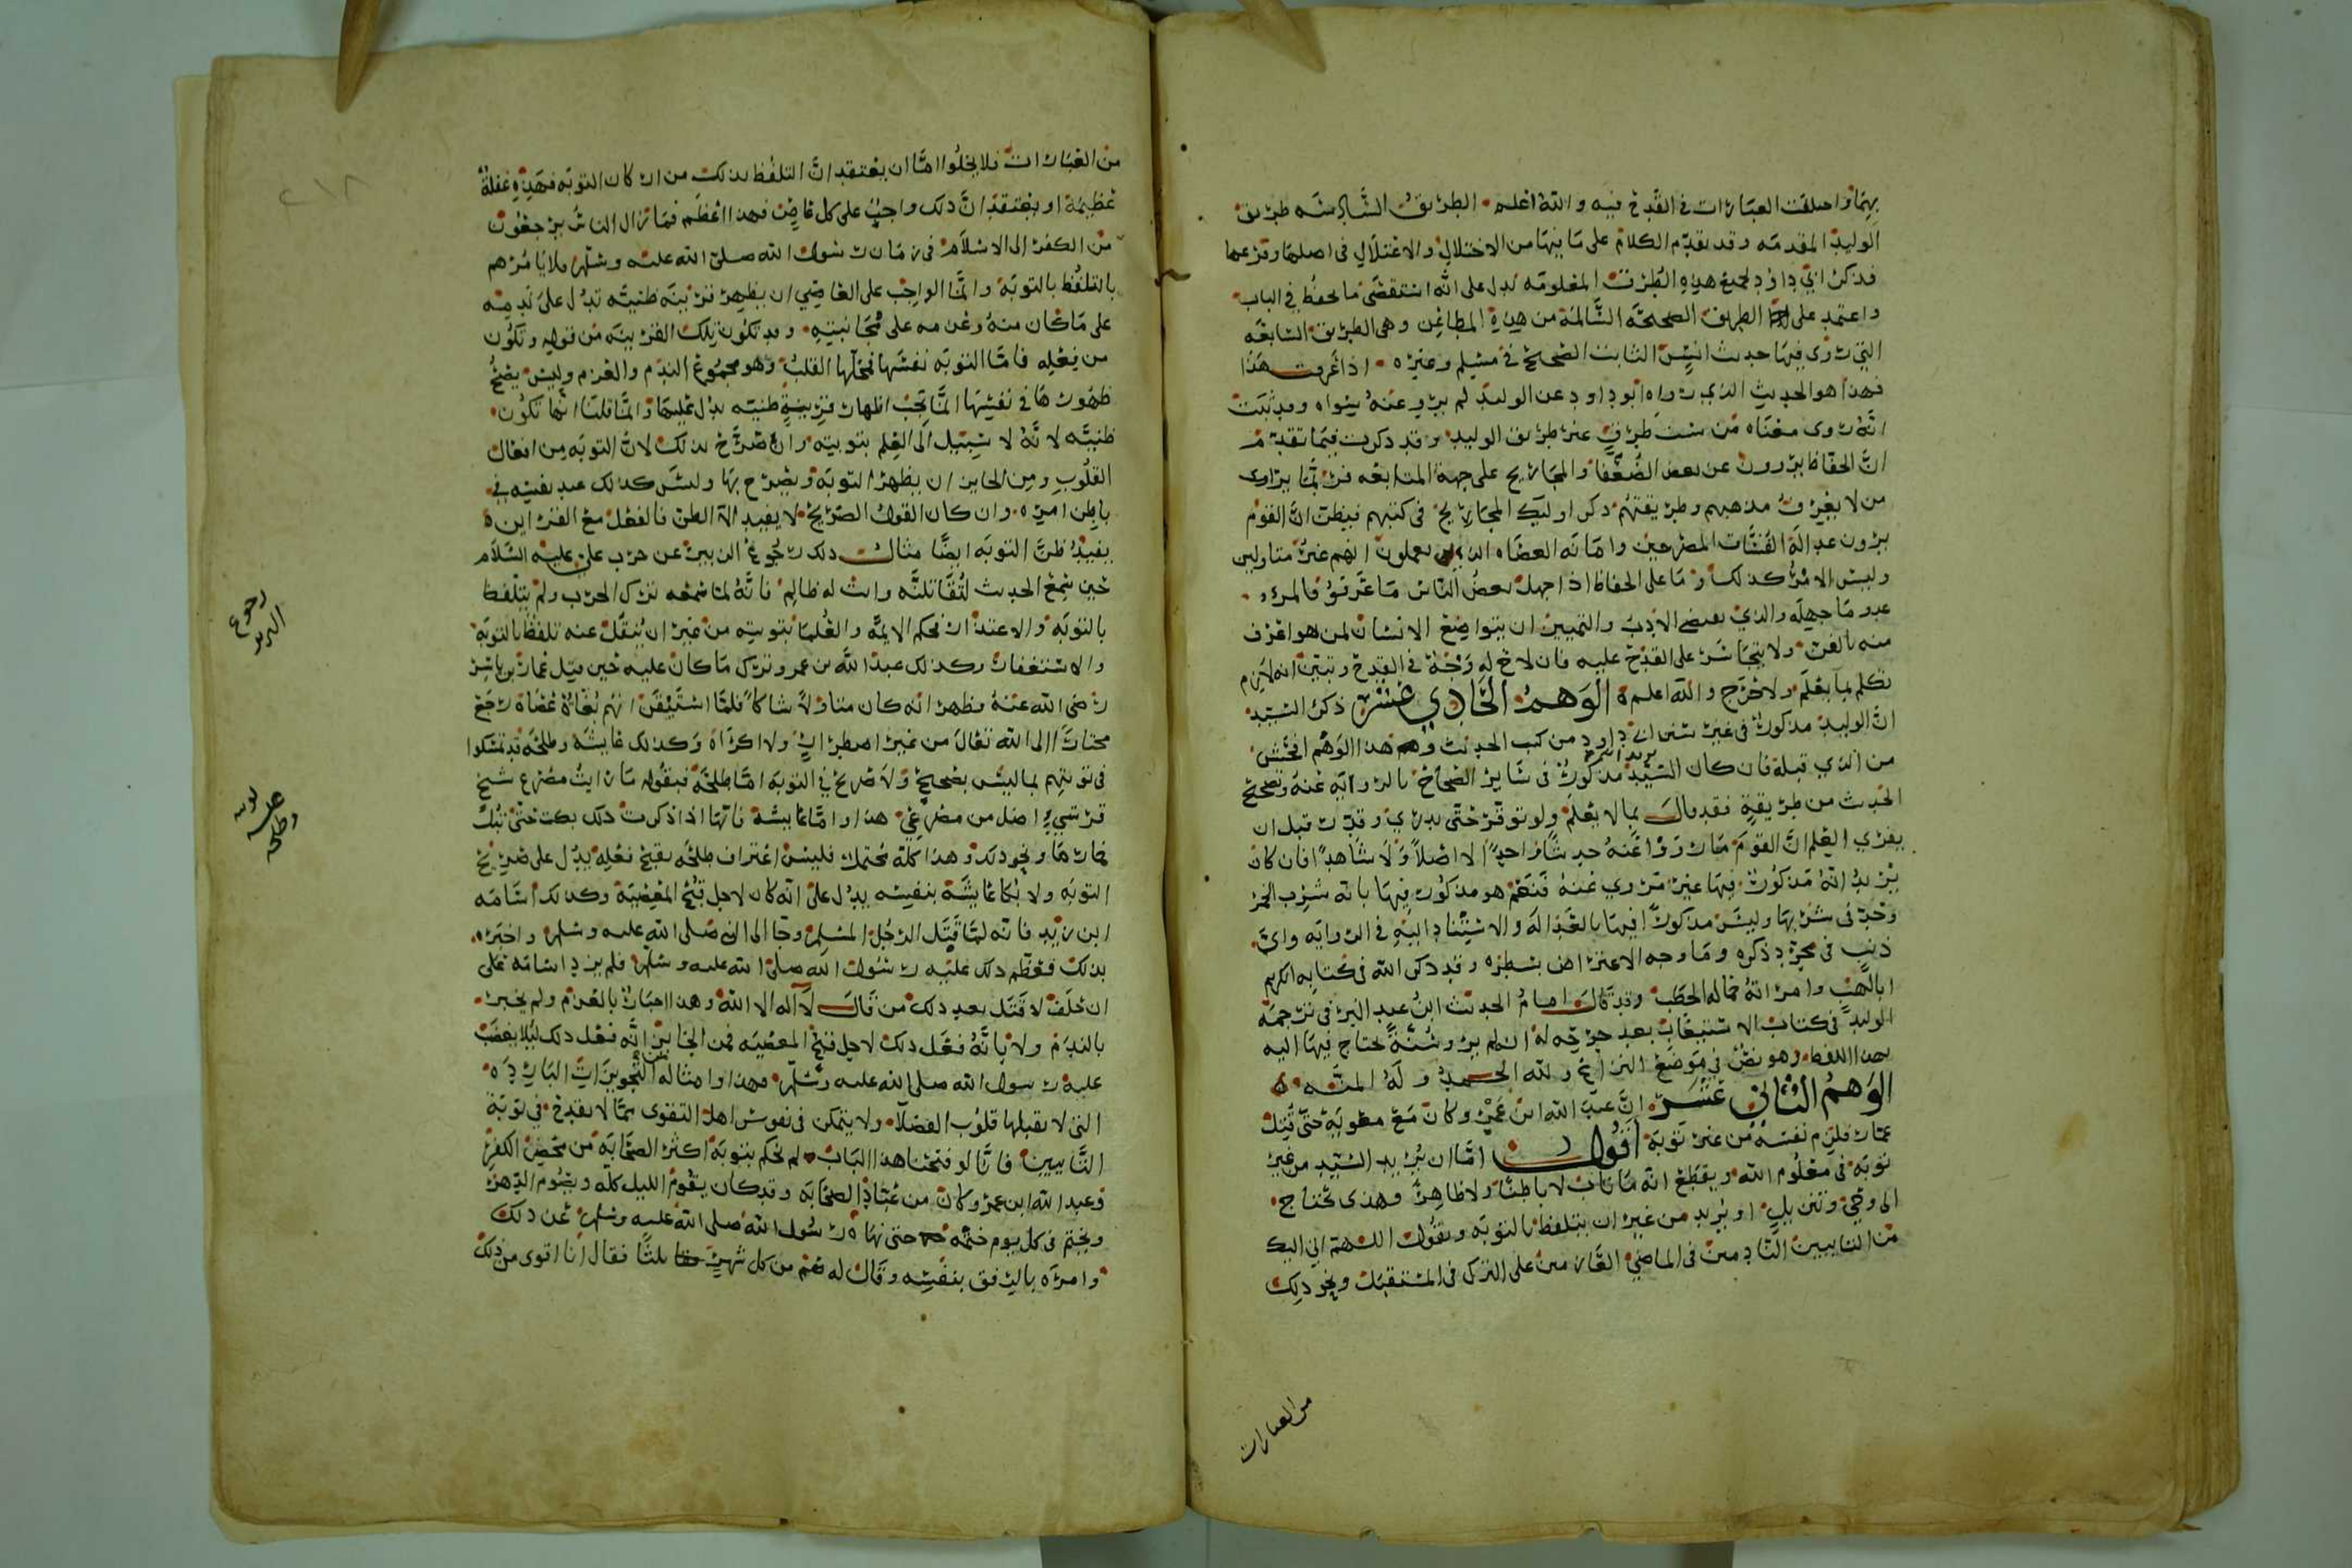 بهما واختلفت العبارات في القدح فيه والله اعلم الطريق السادسه طريق
الوليد المقدمه وقد تقدم الكلام على ما فيها من الاختلال والاعتلال في اصلها وفرعها
فذكر ابي داود لجميع هذه الطرق المعلومه يدل على انه استقصى ما يحفظ في الباب
واعتمد على الطريق الصحيحه السالمة من هذه المطاعن وهي الطريق السابعه
التي روى فيها حديث انس الثابت الصحيح في مسلم وغيره اذا عرفت هذا
فهذا هو الحديث الذي رواه ابو داود عن الوليد لم يرو عنه سواه وقد ثبت
انه روى معناه من ست طرق غير طريق الوليد وقد ذكرت فيما تقدم
ان الحفاظ يروون عن بعض الضعفا والمجاريح على جهة المتابعه فربما يراى
من لا يعرف مذهبهم وطريقتهم ذكر اوليك المجاريح في كتبهم فيظن ان القوم
يرون عدالة الفساق المصرحين وامانه العصاه الذين يعملون انهم غير متاولين
وليس الامر كذلك وما على الحفاظ اذا جهل بعض الناس ما عرفوا فالمرء
عدو ما جهله والذي يقتضي الادب والتمييز ان يتواضع الانسان لمن هو اعرف
منه بالفن ولا يتجاسر على القدح عليه فان لاح له وجه في القدح وتبين انه لازم
تكلم بما يعلم ولا حرج والله اعلم الوهم الحادي عشر ذكر السيد
ان الوليد مذكور في غير سنن ابي داود من كتب الحديث وهذا الوهم افحش
من الذي قبله فان كان السيد يريد انه مذكور في ساير الصحاح بالروايه عنه وتصحيح
الحديث من طريقة فقد قال بما لا يعلم ولو توقر حتى يدري وقدر قبل ان
يفري العلم ان القوم ما رووا عنه حديثا واحدا لا اصلا ولا شاهدا فان كان
يريد انه مذكور فيها غير مروي عنه فنعم هو مذكور فيها بانه شرب الخمر
وحد في شربها وليس مذكورا فيها بالعدالة والاستناد اليه في الروايه واي
ذنب في مجرد ذكره وما وجه الاعتراض بسطره وقد ذكر الله في كتابه الكريم
ابا لهب وامراته حماله الحطب وقد قال امام الحديث ابن عبد البر في ترجمة
الوليد في كتاب الاستيعاب بعد جرحه له انه لم يرو سنة يحتاج فيها اليه
بهذا اللفظ وهو نص في موضع النزاع ولله الحمد وله المنه
الوهم الثاني عشر ان عبد الله ابن عمرو كان مع معوية حتى قتل
عمار فلزم نفسه من غير توبة اقول اما ان يريد السيد من غير
توبة في معلوم الله ويقطع انه ما تاب لا باطنا ولا ظاهرا فهذى تحتاج
الى وحي وتنزيل او يريد من غير ان يتلفظ بالتوبه ويقول اللهم اني اليك
من التايبين النادمين في الماضي العازمين على الترك في المستقبل ونحو ذلك
من العبارات
من العبارات فلا يخلوا اما ان يعتقد ان التلفظ بذلك من اركان التوبه فهذه غفلة
عظيمة او يعتقد ان ذلك واجب على كل عاص فهذا اعظم فما زال الناس يرجعون
من الكفر الى الاسلام في زمان رسول الله صلى الله عليه وسلم فلا يامرهم
بالتلفظ بالتوبة وانما الواجب على العاصي ان يظهر قرينه ظنيه تدل على ندمه
على ما كان منه وعزمه على مجانبته وقد تكون تلك القرينه من قوله وتكون
من فعله فاما التوبه نفسها فمحلها القلب وهو مجموع الندم والعزم وليس يصح
ظهورها في نفسها انما يجب اظهار قرينة ظنيه يدل عليها وانما قلنا انما تكون
ظنيه لانه لا سبيل الى العلم بتوبته وان صرح بذلك لان التوبه من افعال
القلوب ومن الجايز ان يظهر التوبة ويصرح بها وليس كذلك عند نفسه في
باطن امره وان كان القول الصريح لا يفيد الا الظن فالفعل مع القراين
يفيد ظن التوبه ايضا مثال ذلك رجوع الزبير عن حرب علي عليه السلام
حين سمع الحديث لتقاتلنه وانت له ظالم فانه لما سمعه ترك الحرب ولم يتلفظ
بالتوبه والاعتذار فحكم الايمه والعلما بتوبته من غير ان ينقل عنه تلفظ بالتوبة
والاستغفار وكذلك عبد الله بن عمرو ترك ما كان عليه حين قتل عمار بن ياسر
رضي الله عنه فظهر انه كان متاولا شاكا فلما استيقن انهم بغاة عصاه رجع
مختارا الى الله تعالى من غير اضطرار ولا اكراه وكذلك عايشه وطلحه قد تمسكوا
في توبتهم بما ليس بصحيح ولا صريح في التوبه اما طلحة فبقوله ما رايت مصرع شيخ
قرشي اضل من مصرعي هذا واما عايشة فانها اذا ذكرت ذلك بكت حتى تبل
خمارها ونحو ذلك وهذا كله محتمل فليس اعتراف طلحه بقبح فعله يدل على صريح
التوبه ولا بكا عايشة بنفسه يدل على انه كان لاجل قبح المعصية وكذلك اسامه
ابن زيد فانه لما قتل الرجل المسلم وجا الى النبي صلى الله عليه وسلم واخبره
بذلك فعظم ذلك عليه رسول الله صلى الله عليه وسلم فلم يزد اسامة على
ان حلف لا قتل بعد ذلك من قال لا اله الا الله وهذا اخبار بالعزم ولم يخبر
بالندم ولا بانه فعل ذلك لاجل قبح المعصيه فمن الجايز انه فعل ذلك ليلا يغضب
عليه رسول الله صلى الله عليه وسلم فهذا وامثاله من التجويزات البارده
التي لا تقبلها قلوب الفضلا ولا يتمكن في نفوس اهل التقوى مما لا يقدح في توبة
التايبين فانا لو فتحنا هذا الباب لم نحكم بتوبة اكثر الصحابه من محض الكفر
وعبد الله ابن عمرو كان من عباد الصحابه وقد كان يقوم الليل كله ويصوم الدهر
ويختم في كل يوم ختمه حتى نهاه رسول الله صلى الله عليه وسلم عن ذلك
وامره بالرفق بنفسه وقال له صم من كل شهر ثلثا فقال انا اقوى من ذلك
رجوع
الزبير
توبه
عايشه
وطلحه